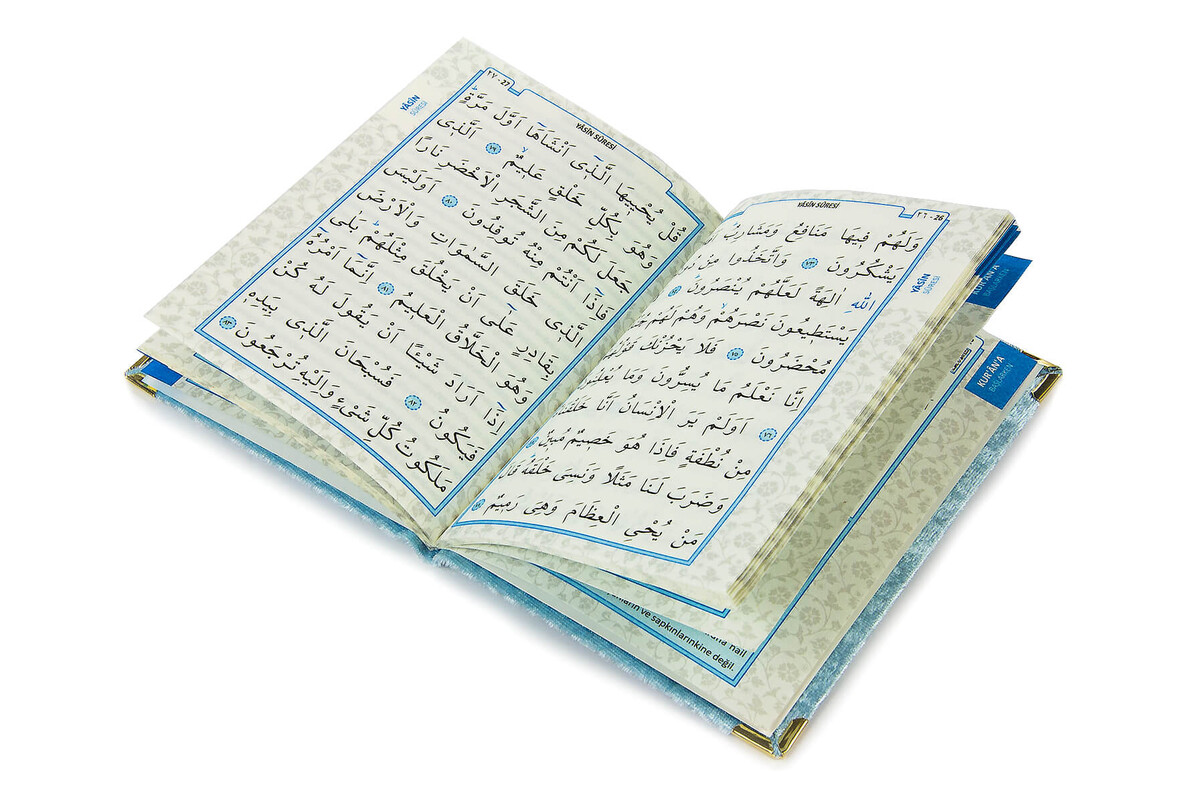 YÂSÎN SÛRESİ
٢٦ - 26
YÂSÎN
SÛRESİ
وَلَهُمْ ف۪يهَا مَنَافِعُ وَمَشَارِبُ
يَشْكُرُونَ ٧٣ وَاتَّخَذُوا مِنْ
اللّٰهِ اٰلِهَةً لَعَلَّهُمْ يُنْصَرُونَ ٧٤
يَسْتَط۪يعُونَ نَصْرَهُمْ وَهُمْ لَهُمْ
مُحْضَرُونَ ٧٥ فَلَا يَحْزُنْكَ
اِنَّا نَعْلَمُ مَا يُسِرُّونَ وَمَا
٧٦ اَوَلَمْ يَرَ الْاِنْسَانُ اَنَّا
مِنْ نُطْفَةٍ فَاِذَا هُوَ خَص۪يمٌ مُب۪ينٌ ٧٧
وَضَرَبَ لَنَا مَثَلًا وَنَسِيَ خَلْقَهُ
مَنْ يُحْيِ الْعِظَامَ وَهِيَ رَم۪يمٌ ٧٨
٢٧ - 27
YÂSÎN SÛRESİ
YÂSÎN
SÛRESİ
قُلْ يُحْي۪يهَا الَّذ۪ٓي اَنْشَاَهَٓا اَوَّلَ مَرَّةٍۜ
وَهُوَ بِكُلِّ خَلْقٍ عَل۪يمٌۙ ٧٩ اَلَّذ۪ي
جَعَلَ لَكُمْ مِنَ الشَّجَرِ الْاَخْضَرِ نَارًا
فَاِذَٓا اَنْتُمْ مِنْهُ تُوقِدُونَ ٨٠ اَوَلَيْسَ
الَّذ۪ي خَلَقَ السَّمٰوَاتِ وَالْاَرْضَ
بِقَادِرٍ عَلٰٓى اَنْ يَخْلُقَ مِثْلَهُمْۜ بَلٰى
وَهُوَ الْخَلَّاقُ الْعَل۪يمُ ٨١ اِنَّمَٓا اَمْرُهُٓ
اِذَٓا اَرَادَ شَيْـًٔا اَنْ يَقُولَ لَهُ كُنْ
فَيَكُونُ ٨٢ فَسُبْحَانَ الَّذ۪ي بِيَدِه۪
مَلَكُوتُ كُلِّ شَيْءٍ وَاِلَيْهِ تُرْجَعُونَ ٨٣
KUR'ÂN'A
BAŞLARKEN
KUR'ÂN'A
BAŞLARKEN
nail
ve sapkınlarınkine değil.